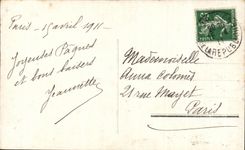 Paris - 15 avril 1911 -
Joyeuses Pâques
et bons baisers
Jeannette
Mademoiselle
Anna Colomès
21 rue Murget
Paris